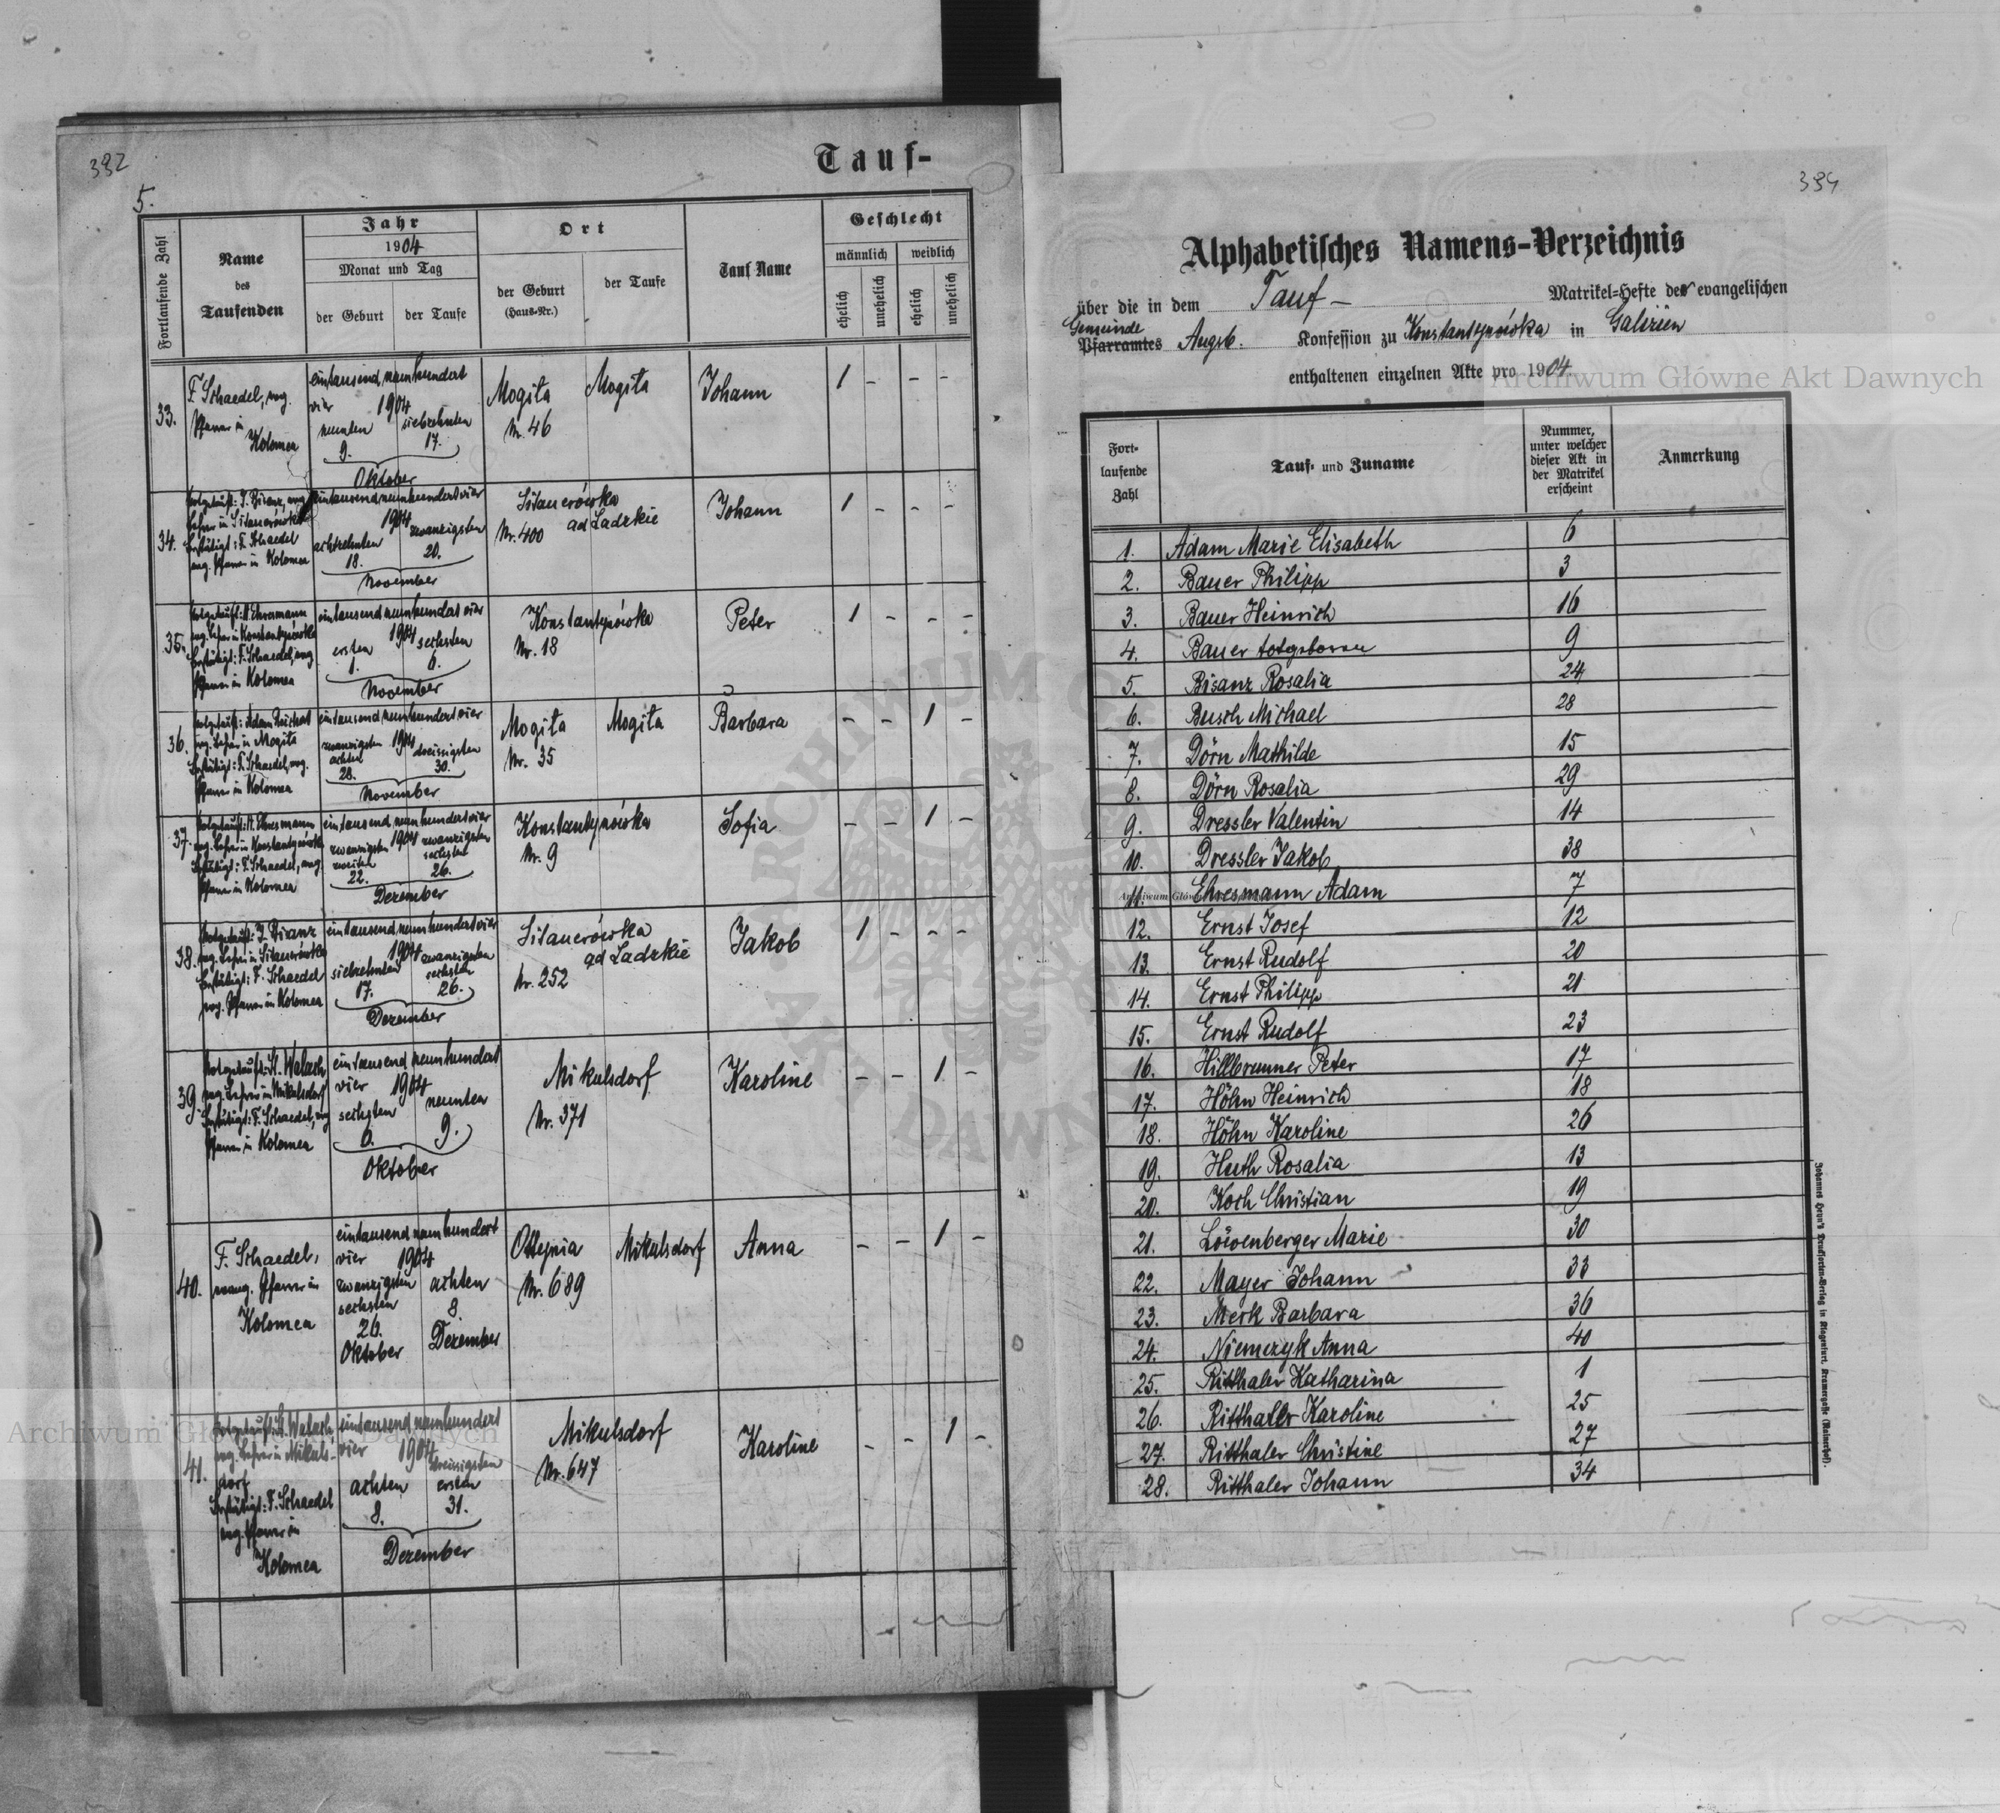 392
Tauf-
5.
Fortlaufende Zahl
Name des Taufenden
Jahr
1904
Monat und Tag
der Geburt
der Taufe
Ort
der Geburt (Haus-Nr.)
der Taufe
Tauf Name
Geschlecht
männlich
weiblich
ehelich
unehelich
ehelich
unehelich
33.
F. Schaedel, evg.
Pfarrer in
Kolomea
eintausend neunhundert
vier 1904
neunten siebzehnten
9. 17.
Oktober
Mogila Mogila
Nr. 46
Johann
1 - - -
34.
Notgetauft: J. Bisanz, evg.
Lehrer in Sitauerówka
Bestätigt: F. Schaedel
evg. Pfarrer in Kolomea
eintausend neunhundert vier
1904
achtzehnten zwanzigsten
18. 20.
November
Sitauerówka
ad Ladzkie
Nr. 400
Johann
1 - - -
35.
Notgetauft: A. Ehresmann
evg. Lehrer in Konstantynówka
Bestätigt: F. Schaedel, evg.
Pfarrer in Kolomea
eintausend neunhundert vier
1904
ersten sechsten
1. 6.
November
Konstantynówka
Nr. 18
Peter
1 - - -
36.
Notgetauft: Adam
evg. Lehrer in Mogila
Bestätigt: F. Schaedel, evg.
Pfarrer in Kolomea
eintausend neunhundert vier
zwanzigsten 1904 dreissigsten
achten
28. 30.
November
Mogila Mogila
Nr. 35
Barbara
- - 1 -
37.
Notgetauft: A. Ehresmann
evg. Lehrer in Konstantynówka
Bestätigt: F. Schaedel, evg.
Pfarrer in Kolomea
eintausend neunhundert vier
zwanzigsten 1904 zwanzigsten
zweiten sechsten
22. 26.
Dezember
Konstantynówka
Nr. 9
Sofia
- - 1 -
38.
Notgetauft: J. Bisanz
evg. Lehrer in Sitauerówka
Bestätigt: F. Schaedel
evg. Pfarrer in Kolomea
eintausend neunhundert vier
1904 zwanzigsten
siebzehnten sechsten
17. 26.
Dezember
Sitauerówka
ad Ladzkie
Nr. 252
Jakob
1 - - -
39.
Notgetauft: A. Walach
evg. Lehrer in Mikulsdorf
Bestätigt: F. Schaedel, evg.
Pfarrer in Kolomea
eintausend neunhundert
vier 1904
sechsten neunten
6. 9.
Oktober
Mikulsdorf
Nr. 371
Karoline
- - 1 -
40.
F. Schaedel,
evang. Pfarrer in
Kolomea
eintausend neunhundert
vier 1904
zwanzigsten achten
sechsten 8.
26. Dezember
Oktober
Ottynia Mikulsdorf
Nr. 689
Anna
- - 1 -
41.
Notgetauft: A. Walach
evg. Lehrer in Mikuls-
dorf
Bestätigt: F. Schaedel
evg. Pfarrer in
Kolomea
eintausend neunhundert
vier 1904
dreissigsten
achten ersten
8. 31.
Dezember
Mikulsdorf
Nr. 647
Karoline
- - 1 -
394
Alphabetisches Namens-Verzeichnis
über die in dem Tauf- Matrikel-Hefte der evangelischen
Gemeinde
Pfarramtes Augsb. Konfession zu Konstantynówka in Galizien
enthaltenen einzelnen Akte pro 1904.
Fortlaufende Zahl
Tauf- und Zuname
Nummer, unter welcher dieser Akt in der Matrikel erscheint
Anmerkung
1. Adam Marie Elisabeth 6
2. Bauer Philipp 3
3. Bauer Heinrich 16
4. Bauer totgeboren 9
5. Bisanz Rosalia 24
6. Busch Michael 28
7. Dörn Mathilde 15
8. Dörn Rosalia 29
9. Dressler Valentin 14
10. Dressler Jakob 38
11. Ehresmann Adam 7
12. Ernst Josef 12
13. Ernst Rudolf 20
14. Ernst Philipp 21
15. Ernst Rudolf 23
16. Hillbrunner Peter 17
17. Höhn Heinrich 18
18. Höhn Karoline 26
19. Huth Rosalia 13
20. Koch Christian 19
21. Löwenberger Marie 30
22. Mayer Johann 33
23. Merk Barbara 36
24. Niemczyk Anna 40
25. Ritthaler Katharina 1
26. Ritthaler Karoline 25
27. Ritthaler Christine 27
28. Ritthaler Johann 34
Johannes Heyn's Drucksorten-Verlag in Klagenfurt, Kramergasse (Rainerhof).
Archiwum Główne Akt Dawnych
Archiwum Główne Akt Dawnych
ARCHIWUM GŁÓWNE AKT DAWNYCH